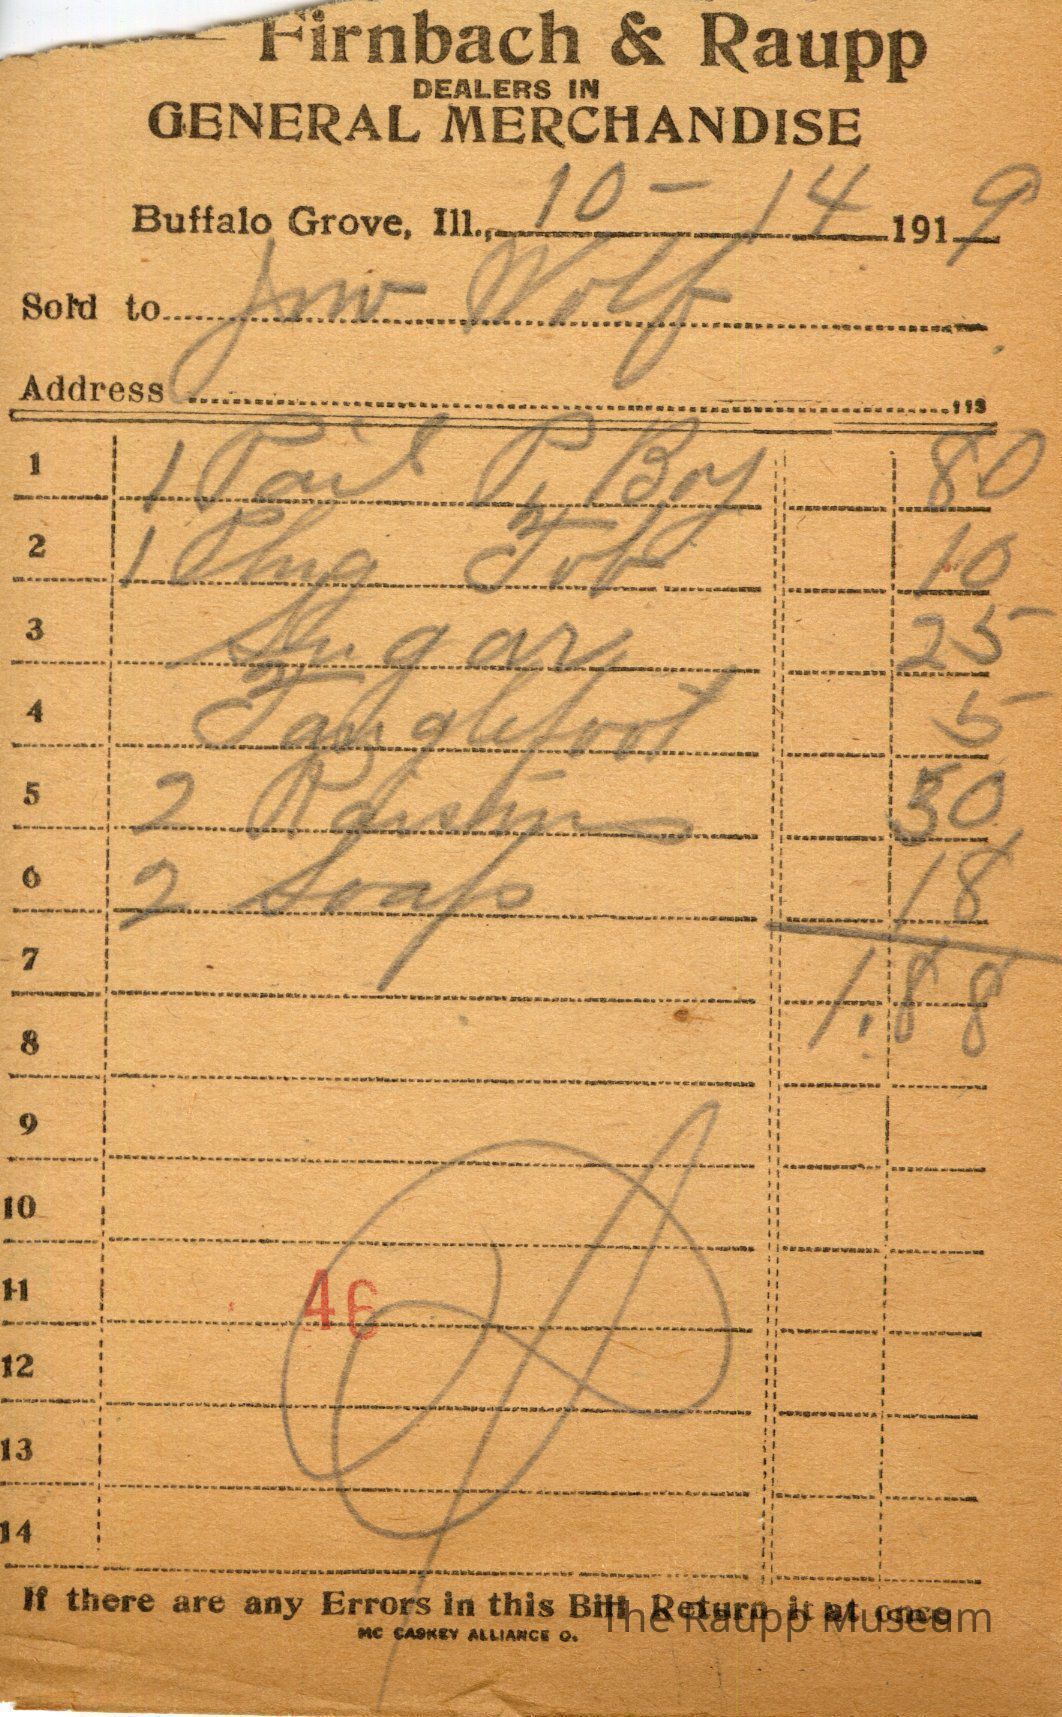 Firnbach & Raupp
DEALERS IN
GENERAL MERCHANDISE
Buffalo Grove, Ill., 10 - 14 1919
Sold to Jno Wolf
Address 113
1 1 Pail P Boy 80
2 1 Plug Tob 10
3 Sugar 25
4 Tanglefoot 5
5 2 Raisin 50
6 2 Soap 18
7 1.88
8
9
10
11 46
12
13
14
If there are any Errors in this Bill Return it at once
The Raupp Museum
MC CASKEY ALLIANCE O.